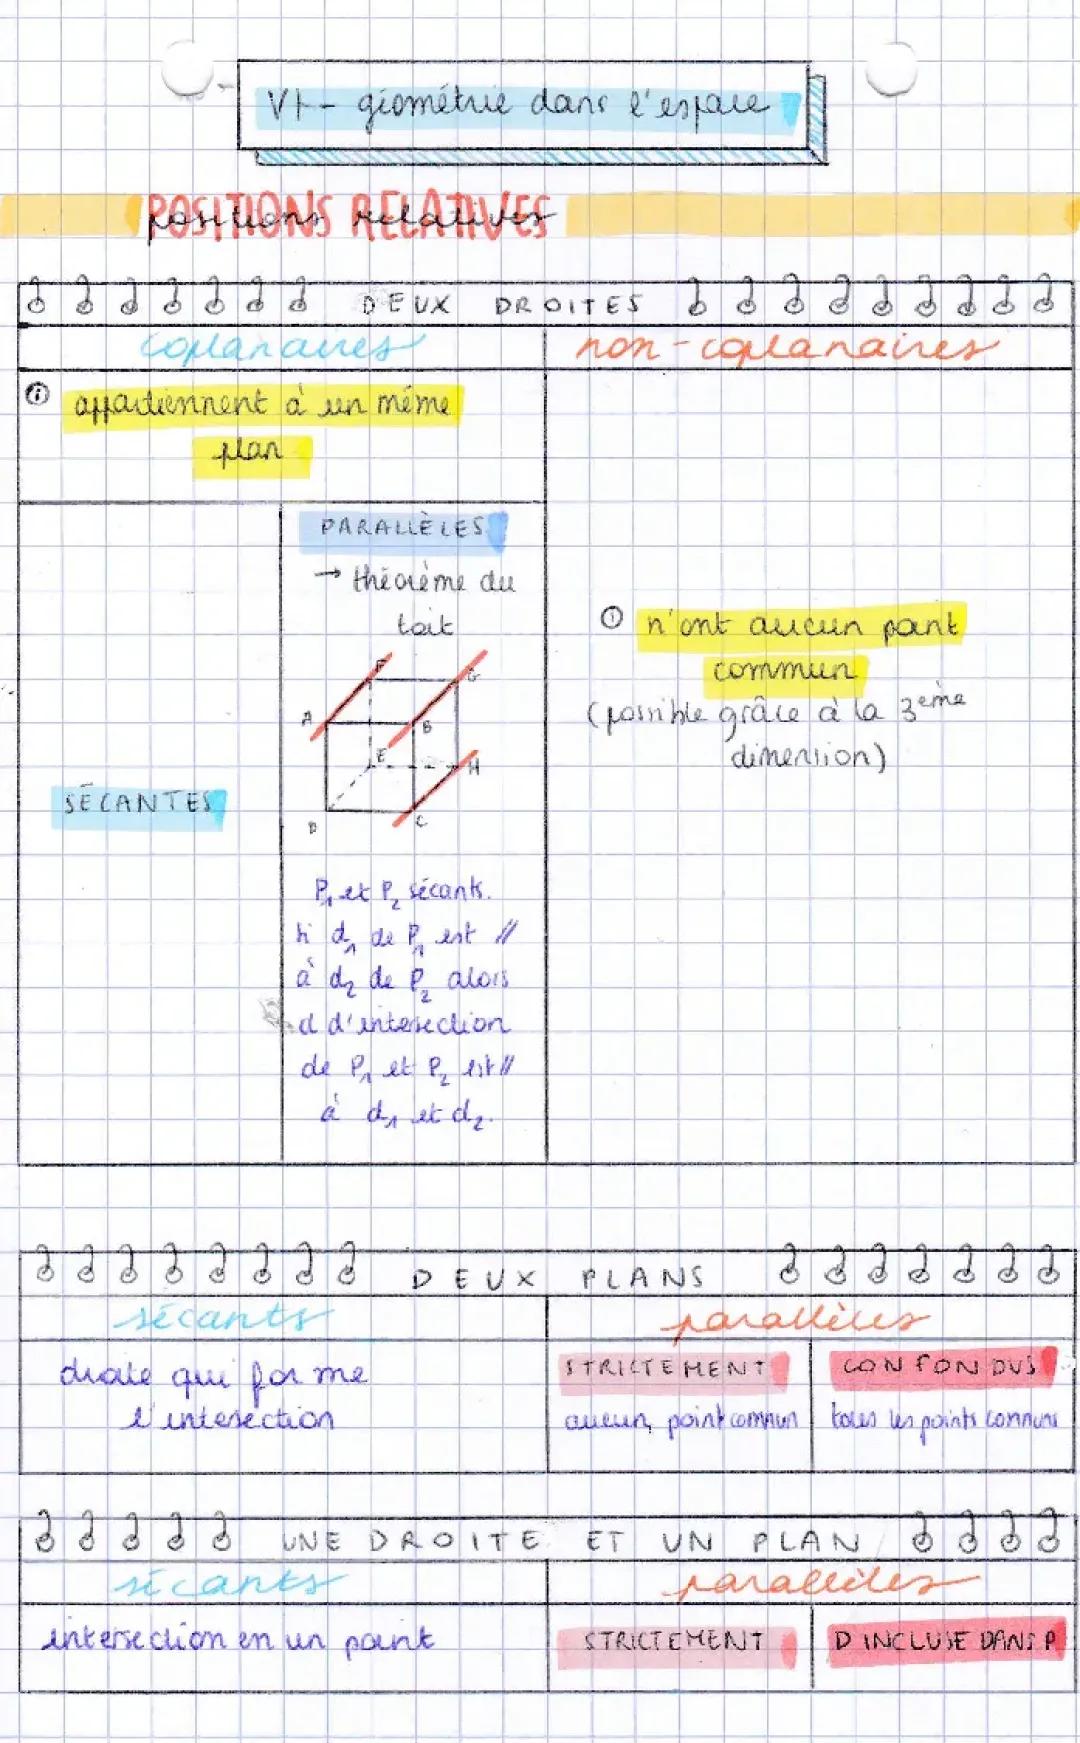 VI - géométrie dans l'espace
POSITIONS RELATIVES
positions relatives
DEUX DROITES
coplanaires
non-coplanaires
appartiennent à un même
plan
PARALLÈLES
→ théorème du
toit
F
G
A
B
E
H
D
C
SÉCANTES
P₁ et P₂ sécants.
Si d₁ de P₁ est //
à d₂ de P₂ alors
d d'intersection
de P₁ et P₂ est //
à d₁ et d₂.
n'ont aucun point
commun
(possible grâce à la 3ème
dimension)
DEUX PLANS
sécants
parallèles
droite qui forme
l'intersection
STRICTEMENT
aucun point commun
CONFONDUS
tous les points communs
UNE DROITE ET UN PLAN
sécants
parallèles
intersection en un point
STRICTEMENT
D INCLUSE DANS P